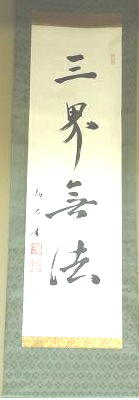 三界無法